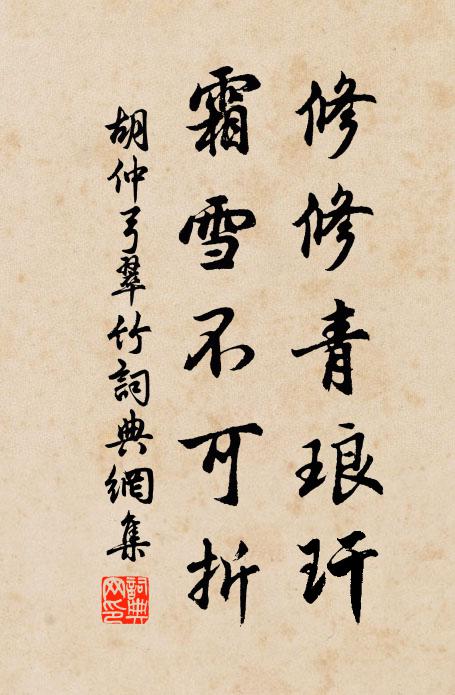 修修青琅玕
霜雪不可折
胡仲弓翠竹詞典網集
詞典网印